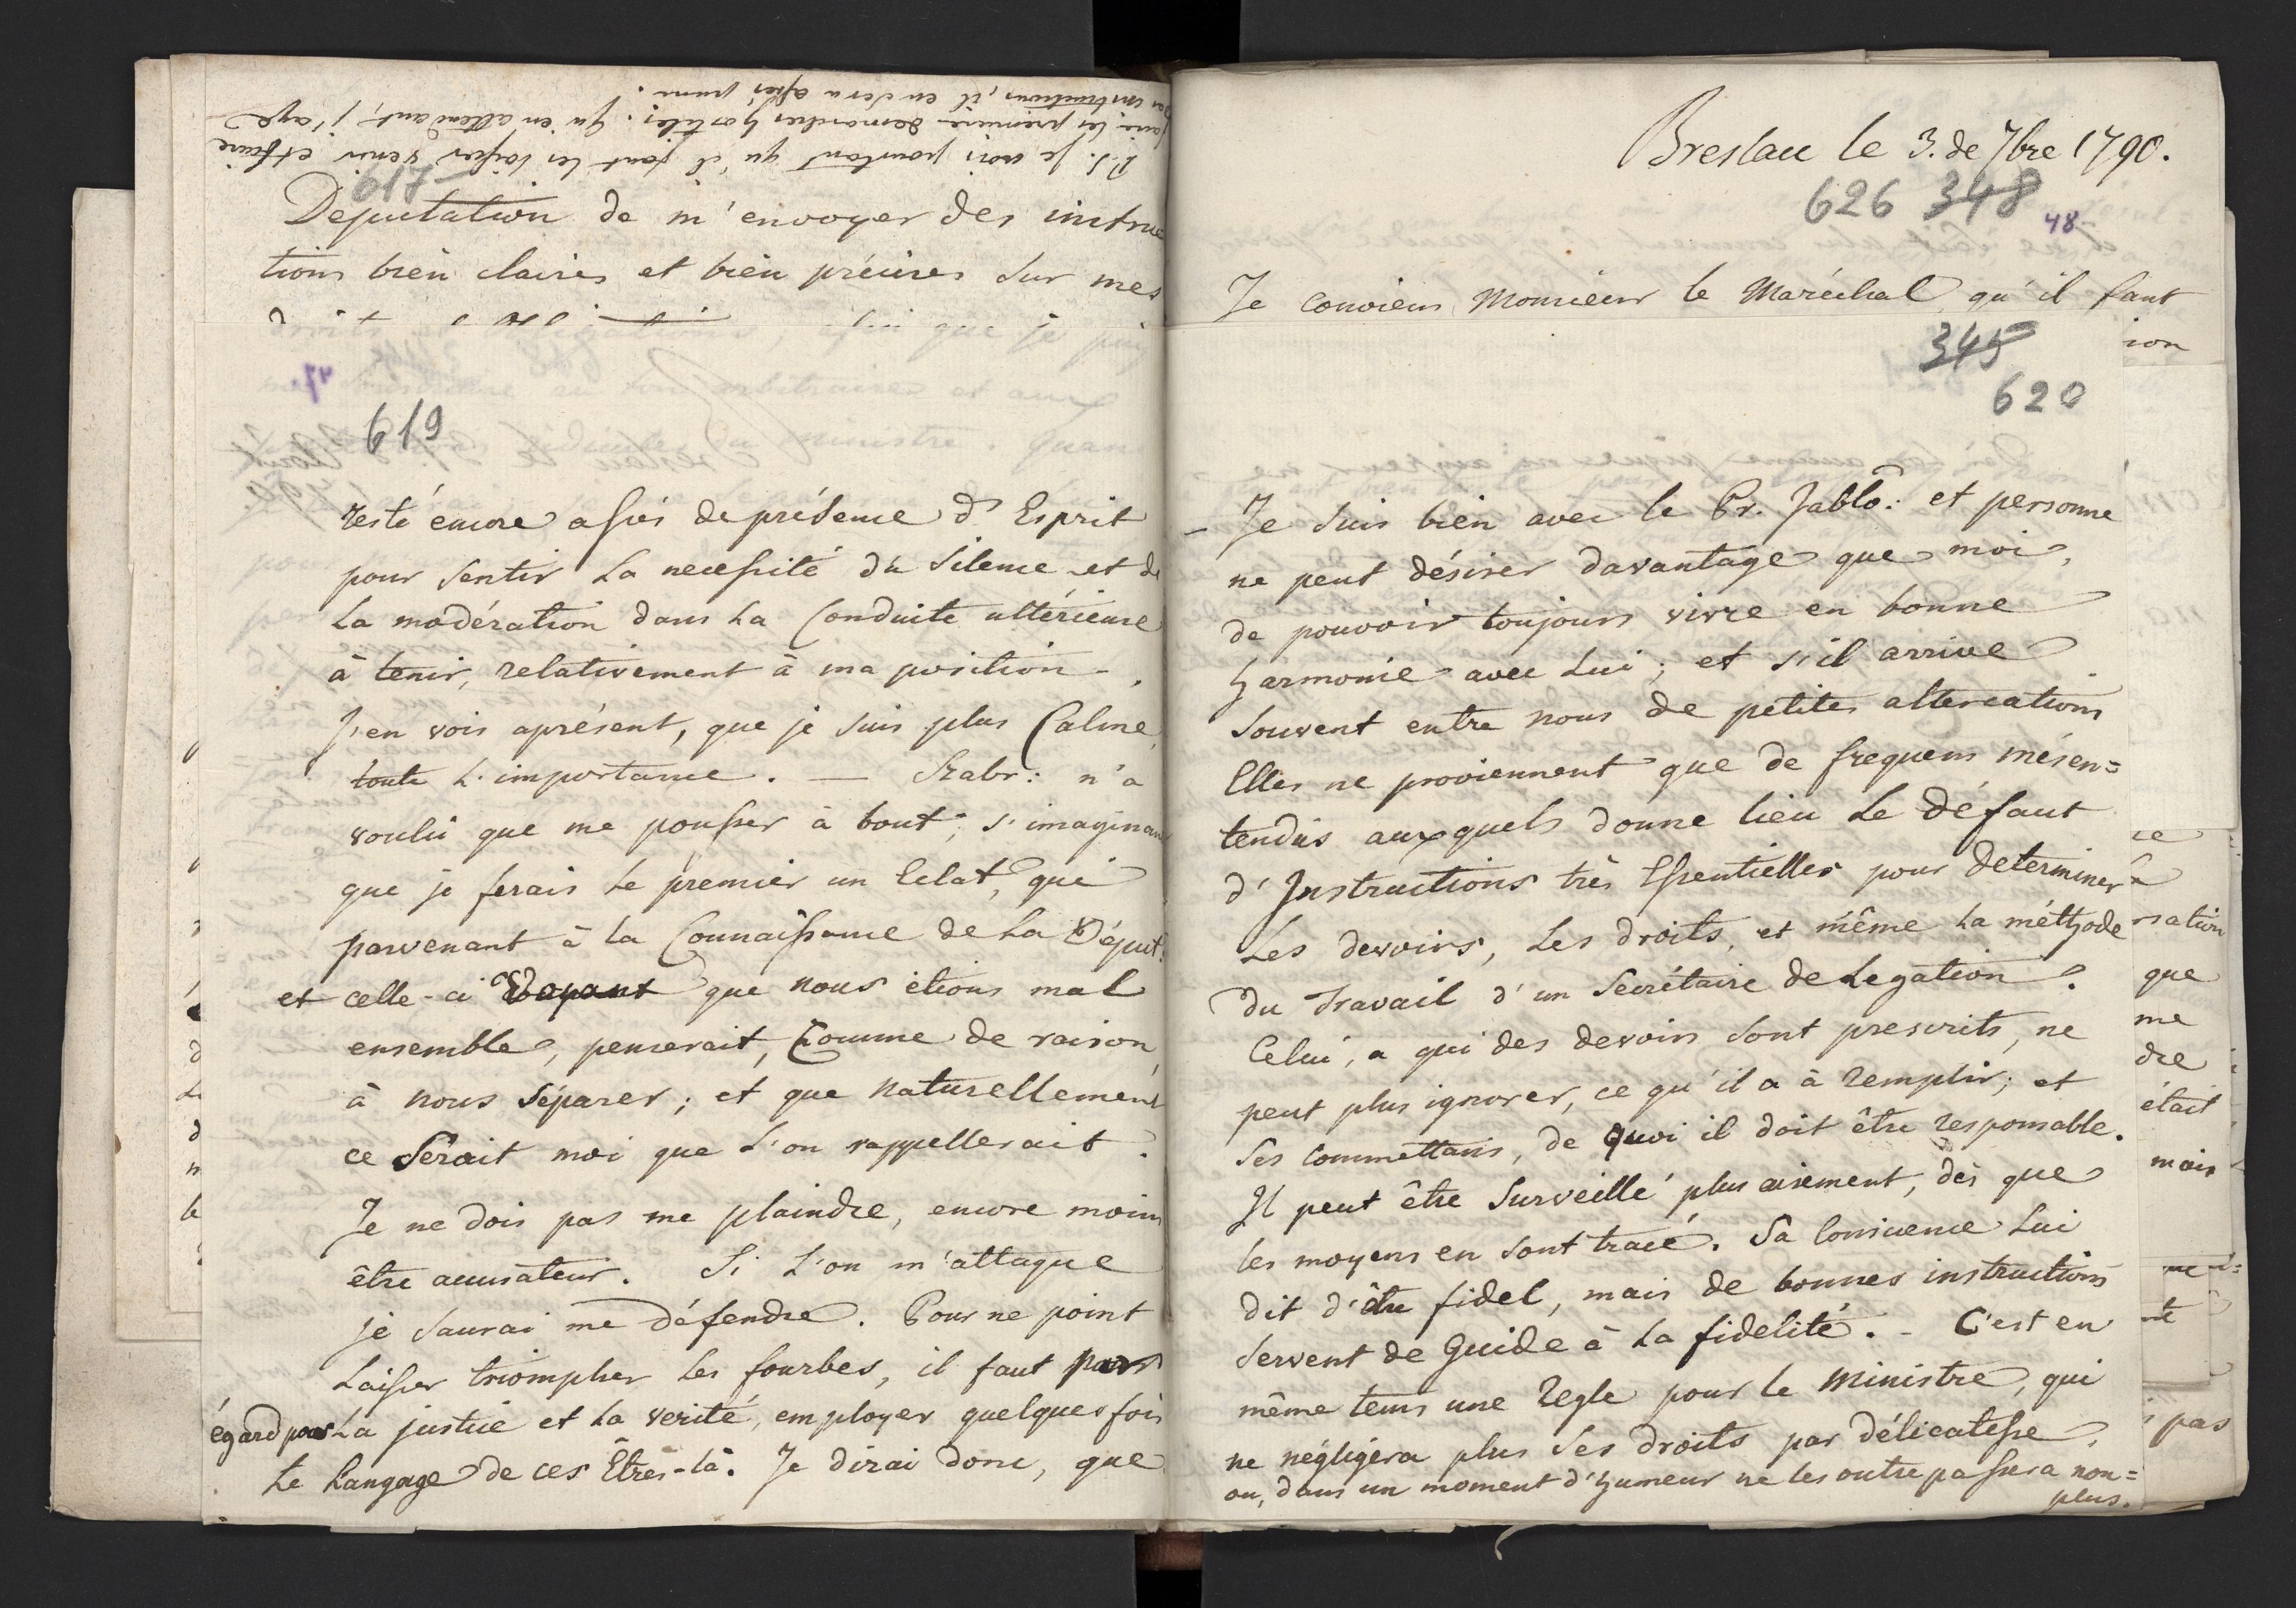 P.S. Je vois pourtant qu'il faut les laisser venir et faire
faire les premieres demarches hostiles. Qu'en attendant, j'aye
des instructions, il en sera assés promt.
617
Députation de m'envoyer des instruc
tions bien claires et bien précises sur mes
619
resté encore assés de présence d'Esprit
pour sentir la necessité du Silence et de
la modération dans la Conduite ultérieure
à tenir, relativement à ma position.
J'en vois aprésent, que je suis plus Calme,
toute l'importance. — Szabr: n'a
voulu que me pousser à bout; s'imaginant
que je ferais le premier un Eclat, qui
parvenant à la Connaissance de la Déput:
et celle-ci Voyant que nous étions mal
ensemble, penserait, Comme de raison,
à nous séparer; et que naturellement
ce Serait moi que l'on rappellerait.
Je ne dois pas me plaindre, encore moins
être accusateur. Si l'on m'attaque
je saurai me défendre. Pour ne point
laisser triompher les fourbes, il faut par
égard pour la justice et la verité, employer quelques fois
le Langage de ces Êtres-là. Je dirai donc, que
Breslau le 3. de 7bre 1790.
626 348
48
Je conviens, Monsieur le Maréchal, qu'il faut
ion
345
620
- Je suis bien avec le Pr. Jablo: et personne
ne peut désirer davantage que moi,
de pouvoir toujours vivre en bonne
harmonie avec Lui; et s'il arrive
souvent entre nous de petites altercations
Elles ne proviennent que de frequens mésen=
tendus auxquels donne lieu le défaut
d'Instructions très Essentielles pour determiner
Les devoirs, Les droits, et même la méthode
du Travail d'un Secrétaire de Legation.
Celui, a qui des devoirs sont prescrits, ne
peut plus ignorer, ce qu'il a à remplir; et
ses commettans, de quoi il doit être responsable.
Il peut être surveillé plus aisement, dès que
les moyens en sont tracé. Sa Consience Lui
dit d'être fidel, mais de bonnes instructions
servent de Guide à la fidelité. - C'est en
même tems une Regle pour le Ministre, qui
ne négligera plus ses droits par délicatesse,
ou, dans un moment d'humeur ne les outrepassera non=
plus.
ce
rsation
que
me
dre
était
mais
pas